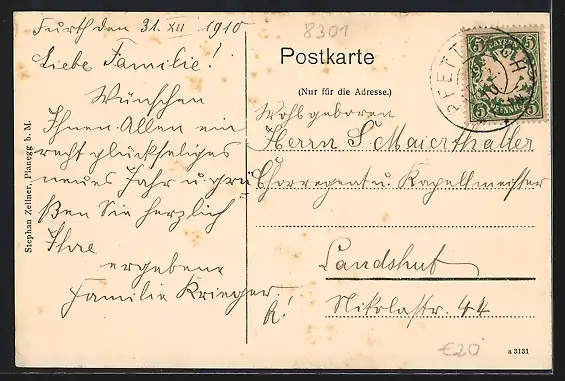 Furth den 31. XII. 1910
Liebe Familie!
Wünschen
Ihnen Allen ein
recht glückseliges
neues Jahr u. grü
ßen Sie herzlich
Ihre
ergebene
Familie Krieger.
R!
Stephan Zellner, Planegg b. M.
8301
Postkarte
(Nur für die Adresse.)
Wohlgeboren
Herrn S Maierthaller
Chorregent u. Kapellmeister
Landshut
Nikolastr. 44
€20
a 3131
5 BAYERN 5
5 PFENNIG 5